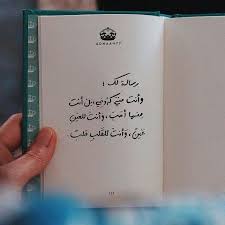 رسالة لك :
وأنت مني كروحي، بل أنت
منها أحب، وأنت للعين
عين، وأنت للقلب قلب.